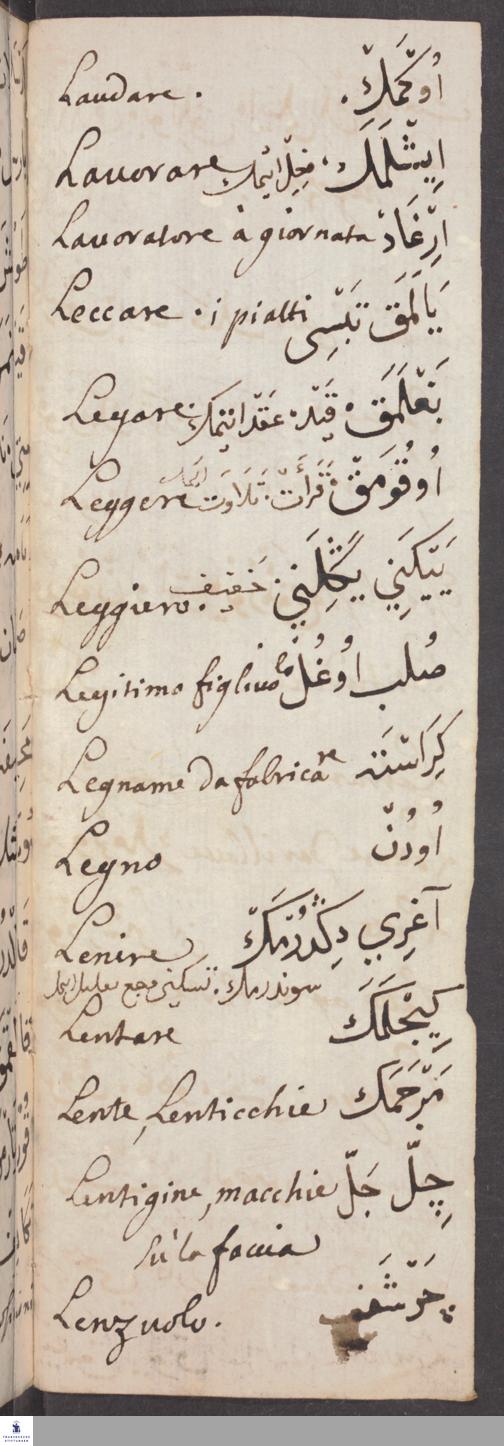 Laudare . اُوكَّمَكِّ .
Lauorare ايتمك اِيشْلَمَكَ ،
Lauoratore à giornata اِرِّغَادْ
Leccare . i piatti يَالَمَقَ تَبْسِى
Legare . بَغْلَمَقَ ، قَيْد ، عَقْد ايتمك
Leggere اُوقُومَقْ ، قَرأَتْ ، تَلَاوَت ايتمك
Leggiero . خفيف يَيْكَنِي يَكَّلِنَي
Legitimo figliuolo صُلب اوُغُلْ
Legname da fabricare كِرَاسْتَه
Legno اُودُنْ
Lenire آغرِي دِكْدُرْمَكْ
سوندرمك . تسكين ايتمك
Lentare كِيجْلَمَكَ
Lente, Lenticchie مَرْجَمَك
Lentigine, macchie چِلّ جَلّ
sù la faccia
Lenzuolo . چَرْشَف